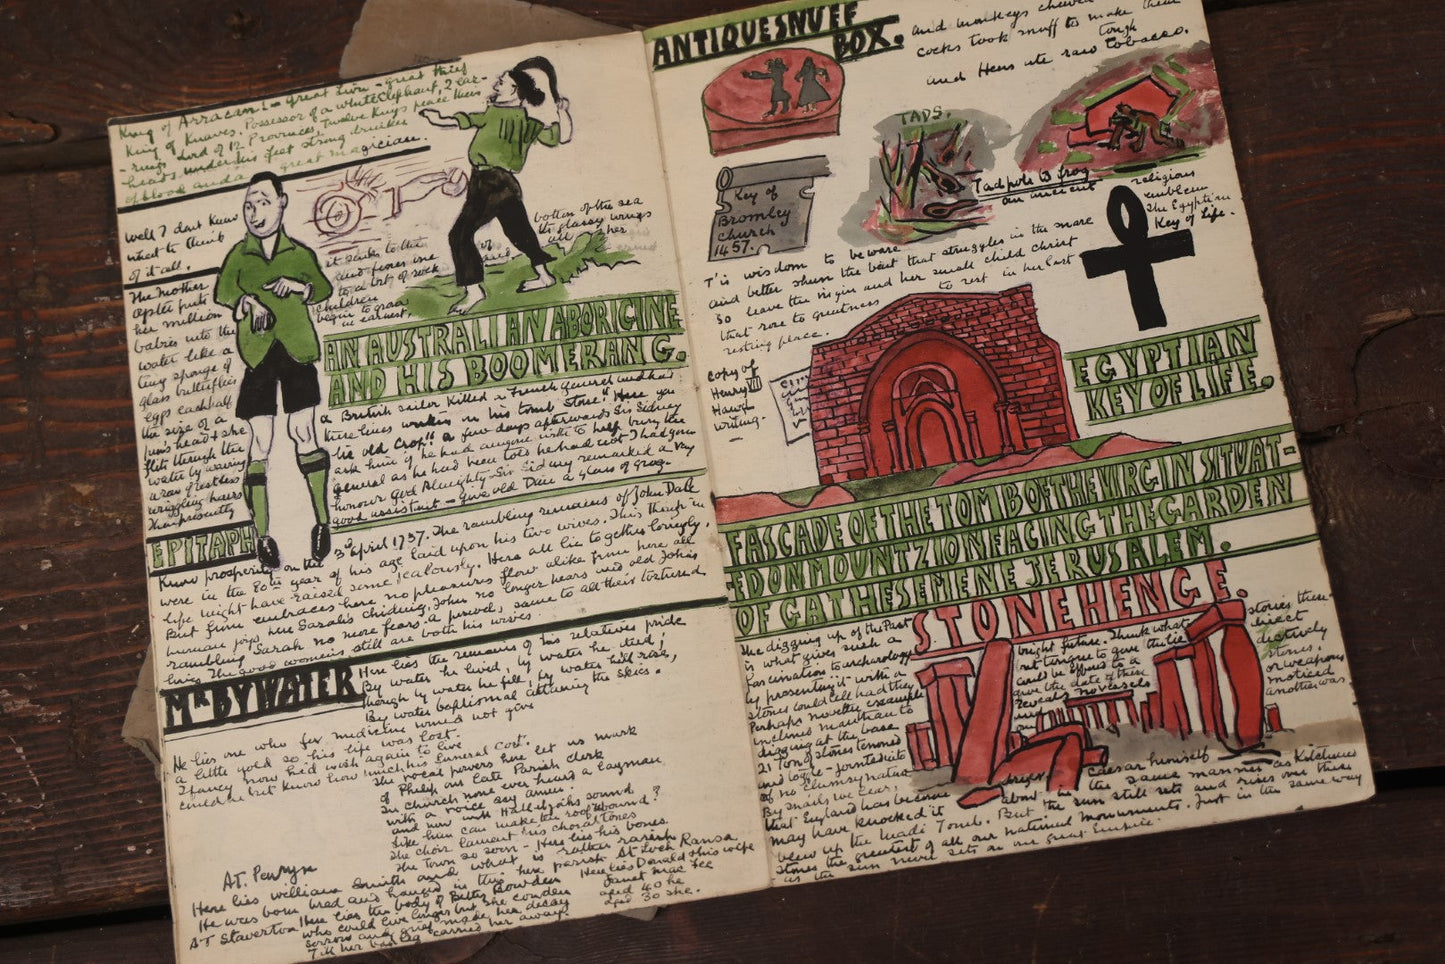 King of Arracan! - Great Lion - great thief
King of Knaves, Possessor of a white Elephant, 2 ear-
-rings Lord of 12 Provinces, Twelve Kings peace their
heads under his feet strong drinker
of blood and a great magician.
Well I dont Know
what to think
of it all.
The Mother
oyster puts
her million
babies into the
water like a
tiny sponge of
glass butterflies
eggs each half
the size of a
pins head & she
flits through the
water by waving
a row of restless
wriggling hairs
Then presently
it sinks to the
bottom of the sea
children
begin to grow
in earnest,
AN AUSTRALIAN ABORIGINE
AND HIS BOOMERANG.
a British sailor Killed a French
there lines written on his tomb stone" Here you
lie old Crop." a few days afterwards Sir Sidney
ask him if he had anyone with to help bury the
general as he had been told he had not I had your
honour God Almighty. Sir Sidney remarked a very
good assistant - give old Dan a glass of grog.
EPITAPH
3rd April 1737. The rambling remains of John Dale
Know prosperity on the
were in the 80th year of his age laid upon his two wives. This thing in
life might have raised some jealously. Here all lie together lovingly,
But from embraces here no pleasures flow alike from here all
human joys, here Sarah's chiding, John no longer hears and old Johns
rambling Sarah no more fears. a period, come to all their tortured
lives The good womens still are both his wives
MR BYWATER
Here lies the remains of his relatives pride
By water he lived, by water he died;
Though by water he fell, by water he'll rise,
By water baptismal attaining the skies.
He lies one who for medicine would not give
a little gold so his life was lost.
I fancy now he'd wish again to live
could he but Know how much his funeral cost.
The vocal powers here let us mark
of Philip our late Parish clerk
In church none ever heard a layman
with a voice say amen!
and now with Hallelujahs sound
like him can make the roof rebound?
The choir lament his choral tones
The Town so soon - Here lies his bones.
AT. Penryn
Here lies william Smith and what is rather rarish
He was born bred and hanged in this here parish
AT Staverton Here lies the body of Betty Bowden
who would live longer but she couldn
Sorrow and grief made her decay
Till her bad leg carried her away.
At Loch Ransa
Here lies Donald & his wife
Janet Mac Fee
aged 40 he
aged 30 she.
ANTIQUE SNUFF
BOX.
and monkeys chewed
cocks took snuff to make them
tough
and Hens ate raw tobacco.
TADS.
Tadpole & frog
an ancient
religious
emblem
The Egyptian
Key of Life.
Key of
Bromley
church
1457.
T'is wisdom to beware
and better shun the bait than struggles in the snare
So leave the virgin and her small child Christ
that rose to greatness to rest in her last
resting peace.
copy of
Henry VII
Hand
writing.
EGYPTIAN
KEY OF LIFE.
FASCADE OF THE TOMB OF THE VIRGIN SITUAT-
-ED ON MOUNT ZION FACING THE GARDEN
OF GATHESEMENE JERUSALEM.
STONEHENGE.
The digging up of the Past
is what gives such a
fascination to archaeology
by presenting it with a
stones could tell had they
Perhaps no better example
inclined man than to
digging at the base
21 Ton of stones tenoned
and toggle-jointed its
of no clumsy nature
By snails we hear,
that England has become
may have Knocked it
bright future. Think what
but tongue to give the lie
could be Effused to a
give the date of these
Reveals no vessels
stones these
direct
ductively
stones,
or weapons
noticed
another was
Caesar himself
about in the same manner as Kitchener
blew up the Madi Tomb. But the sun still sets and rises over these
stones the greatest of all our national monuments. Just in the same way
as the sun never sets on our great Empire.